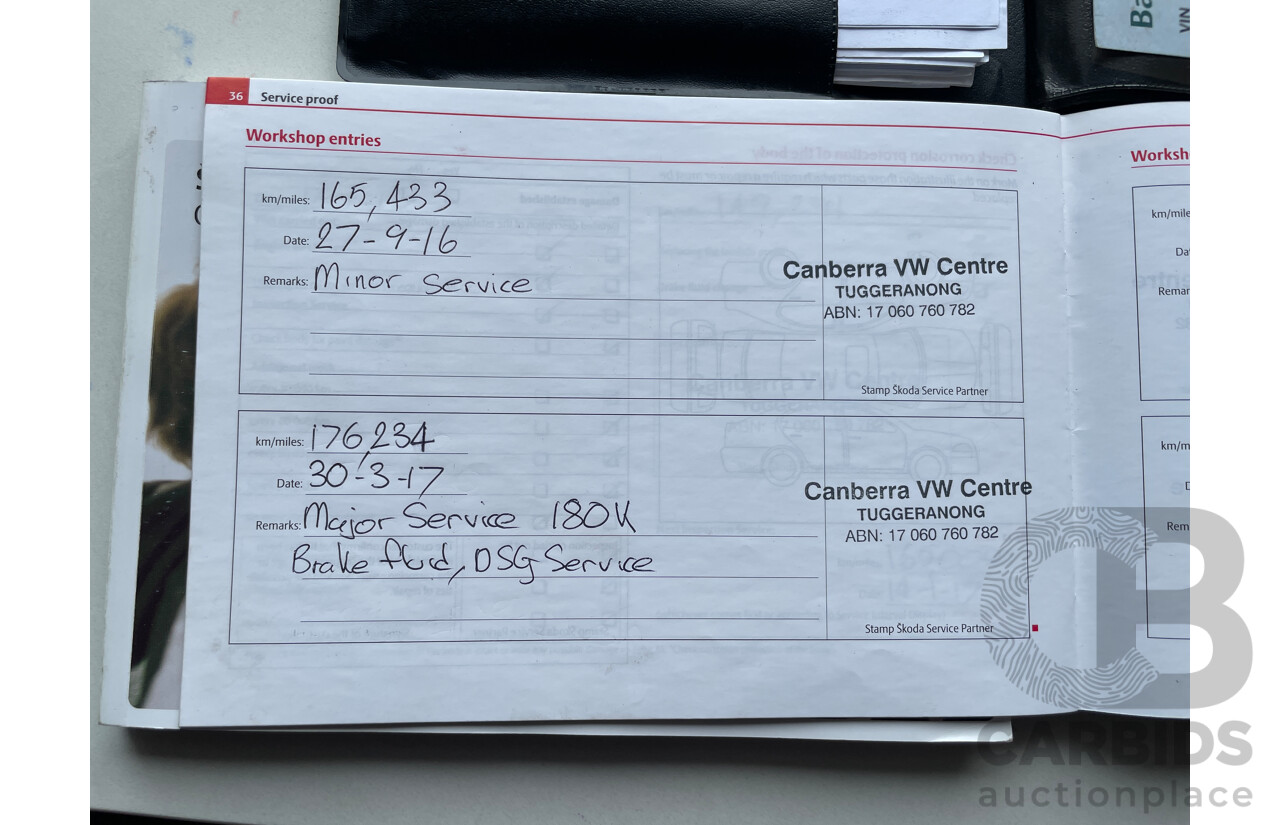 Ba
VIN
36 Service proof
Workshop entries
km/miles: 165,433
Date: 27-9-16
Remarks: Minor Service
Canberra VW Centre
TUGGERANONG
ABN: 17 060 760 782
Stamp Škoda Service Partner
km/miles: 176,234
Date: 30-3-17
Remarks: Major Service 180K
Brake fluid, DSG Service
Canberra VW Centre
TUGGERANONG
ABN: 17 060 760 782
Stamp Škoda Service Partner
Worksh
km/mile
Da
Remar
km/m
D
Rem
CB
CARBIDS
auctionplace